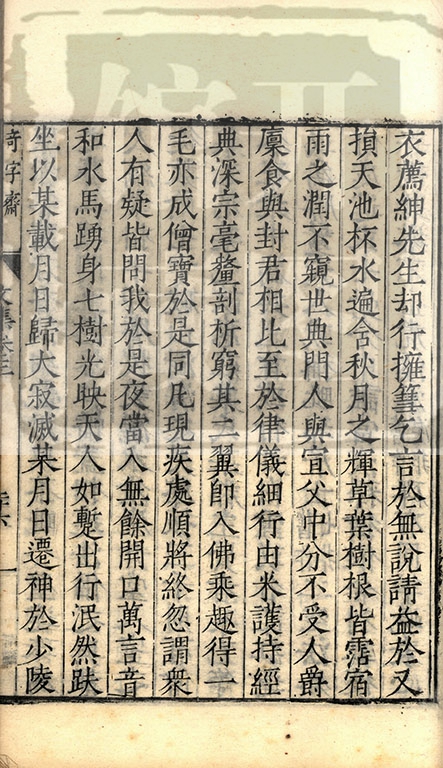 衣薦紳先生却行擁篲乞言於無說請益於又
損天池杯水遍含秋月之輝草葉樹根皆霑宿
雨之潤不窺世典門人與宣父中分不受人爵
廩食與封君相比至於律儀細行由米護持經
典深宗毫釐剖析窮其二翼即入佛乘趣得一
毛亦成僧寶於是同凡現疾處順將終忽謂衆
人有疑皆問我於是夜當入無餘開口萬言音
和水馬踴身七樹光映天人如蹔出行泯然趺
坐以某載月日歸大寂滅某月日遷神於少陵
奇字齋
文集卷三